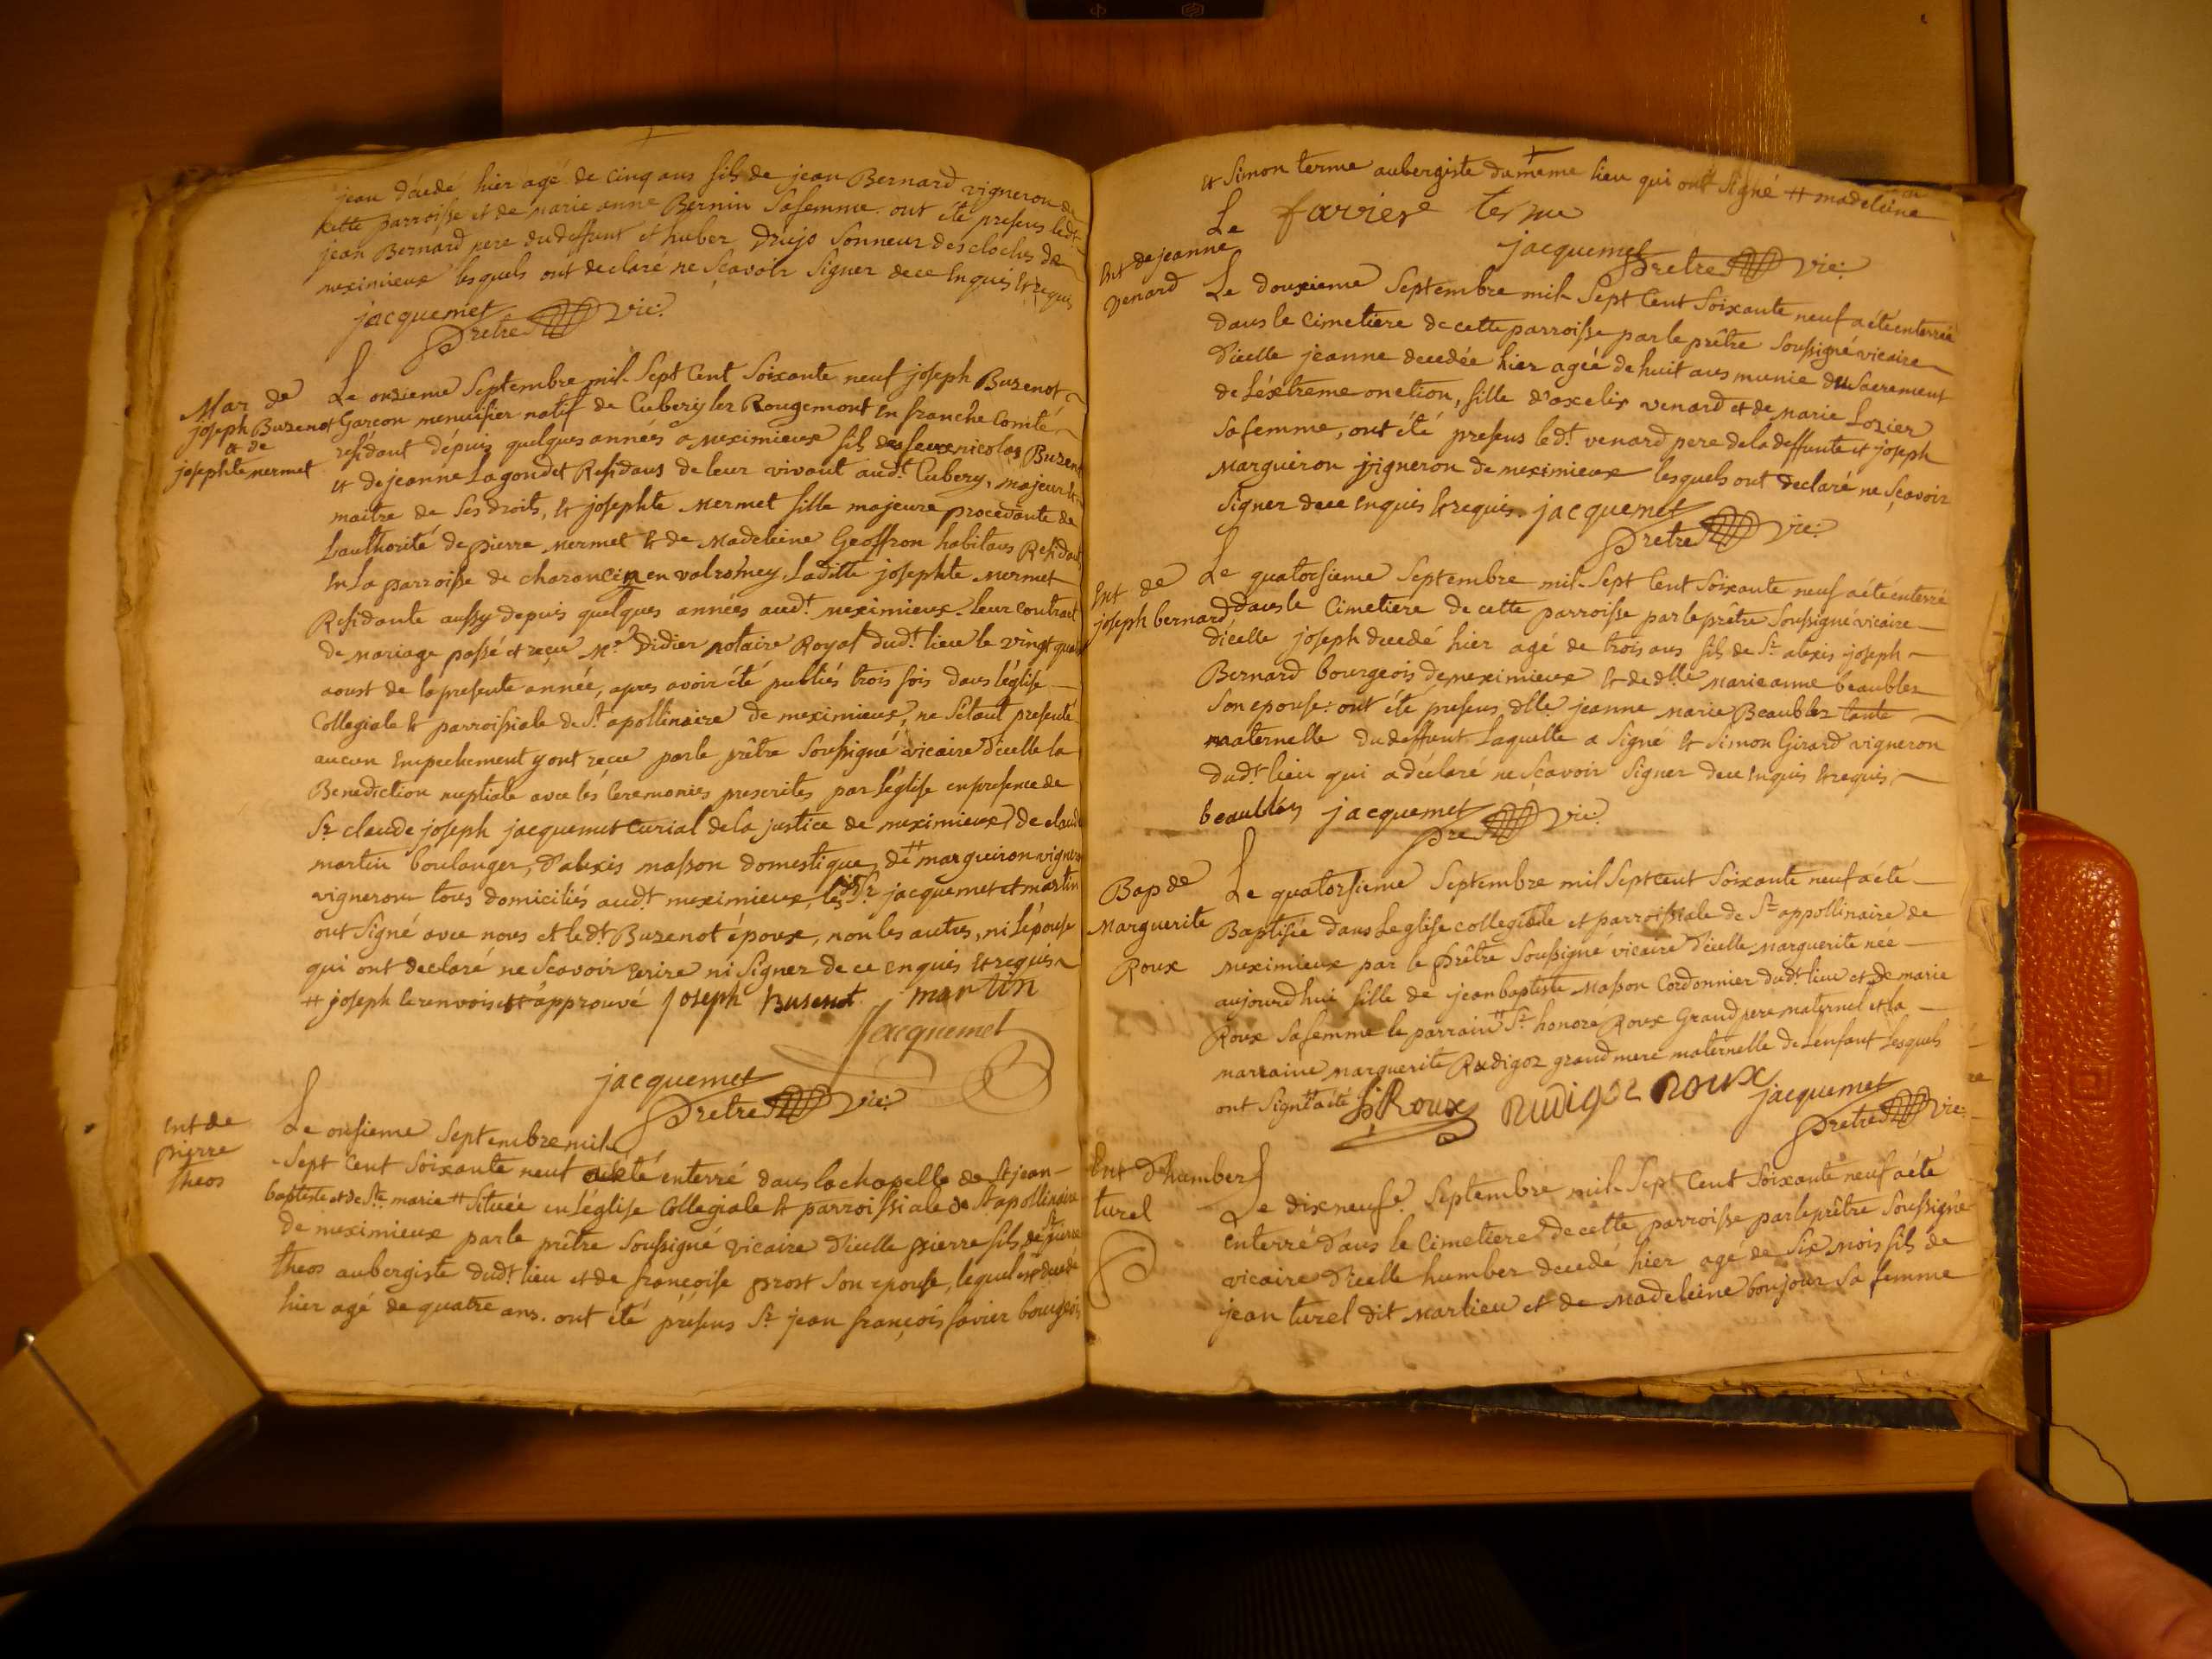 jean décedé hier agé de cinq ans fils de jean Bernard vigneron de
cette parroisse et de marie anne Bernin sa femme. ont été presens ledt
jean Bernard pere du deffunt et huber Drujo sonneur des cloches de
meximieux lesquels ont declaré ne sçavoir signer de ce enquis et requis
jacquemet
pretre vic:
Mar de
joseph Buzenot
et de
josephte mermet
Le onzieme Septembre mil Sept Cent Soixante neuf joseph Buzenot
Garcon menuisier natif de Cubery les Rougemont en franche Comté
residant dépuis quelques années a meximieux fils des feux nicolas Buzenot
et de jeanne Lagondet Residans de leur vivant audt Cubery, majeur et
maitre de ses droits, et josephte mermet fille majeure procedante de
Lauthorité de pierre mermet et de Madeleine Geoffron habitans Residant
en La parroisse de charancin en valromey, Laditte josephte mermet
Residante aussy depuis quelques années audt meximieux. leur contract
de mariage passé et reçu Me Didier notaire Royal dudt lieu le vingt quatre
aoust de la presente année, apres avoir été publiés trois fois dans l'église
Collegiale et parroissiale de St apollinaire de meximieux, ne s'étant presenté
aucun Empechement y ont reçu par le prêtre soussigné vicaire d'icelle la
Benediction nuptiale avec les ceremonies prescrites par l'église en presence de
Sr claude joseph jacquemet curial de la justice de meximieux, de claude
martin boulanger, d'alexis masson domestique, de # margueiron vigneron
vigneron tous domiciliés audt meximieux, lesdts Sr jacquemet et martin
ont signé avec nous et ledt Buzenot époux, non les autres, ni L'épouse
qui ont declaré ne sçavoir Ecrire ni signer de ce enquis et requis
# joseph le renvois est approuvé joseph Busenot martin
Jacquemet
jacquemet
prêtre vic:
Ent de
pierre
theos
Le onsieme Septembre mil
Sept Cent Soixante neuf a été enterré dans la chapelle de St jean
baptiste et de Ste marie # Située en L'église Collegiale et parroissiale de St apollinaire
de meximieux par le prêtre soussigné vicaire d'icelle pierre fils de Sr pierre
theos aubergiste dudt lieu et de françoise prost son epouse, lequel est décedé
hier agé de quatre ans. ont été présens Sr jean françois favier bourgeois
et Simon terme aubergiste du même lieu qui ont signé # madeleine
Le farriere terme
jacquemet
pretre vic:
Ent de jeanne
venard
Le douxieme Septembre mil Sept Cent Soixante neuf a été enterrée
dans le cimetiere de cette parroisse par le prêtre soussigné vicaire
d'icelle jeanne decedée hier agée de huit ans munie du sacrement
de L'éxtreme onction, fille d'axelix venard et de marie Lozier
sa femme, ont été presens ledt venard pere de la deffunte et joseph
margueiron vigneron de meximieux lesquels ont declaré ne sçavoir
signer de ce enquis et requis. jacquemet
prêtre vic:
Ent de
joseph bernard
Le quatorsieme Septembre mil Sept Cent Soixante neuf a été enterré
dans le Cimetiere de cette parroisse par le prêtre soussigné vicaire
dicelle joseph decedé hier agé de trois ans fils de Sr alexis joseph
Bernard bourgeois de meximieux et de dlle marie anne beaublez
son epouse: ont été presens dlle jeanne marie Beaublez tante
maternelle du deffunt Laquelle a signé et Simon Girard vigneron
dudt lieu qui a déclaré ne sçavoir signer de ce enquis et requis
beaublez jacquemet
pre vic:
Bap de
Marguerite
Roux
Le quatorsieme Septembre mil Sept cent Soixante neuf a été
Baptisée dans Leglise collegiale et parroissiale de St appollinaire de
meximieux par le prêtre soussigné vicaire d'icelle marguerite née
aujourdhui fille de jean baptiste masson Cordonnier dudt lieu et de marie
Roux sa femme le parrain # Sr honoré Roux Grand pere maternel et la
marraine marguerite Rudigoz grand mere maternelle de L'enfant Lesquels
ont signé # a été h Roux Rudigoz Roux jacquemet
prêtre vic:
Ent d'humber
turel
Le dixneufe Septembre mil Sept Cent Soixante neuf a été
enterré dans le Cimetiere de cette parroisse par le prêtre soussigné
vicaire d'icelle humber decedé hier agé de six mois fils de
jean turel dit marlieu et de Madeleine boujour sa femme